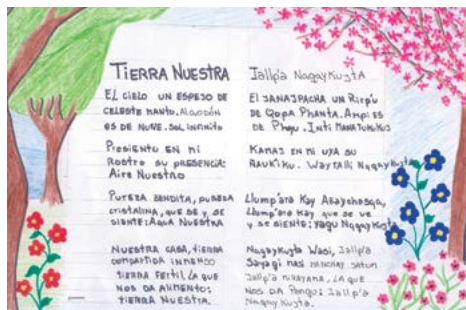 TIERRA NUESTRA
EL CIELO UN ESPEJO DE
CELESTE MANTO. ALGODÓN
ES DE NUVE. SOL INFINITO
PRESIENTO EN MI
ROSTRO SU PRESENCIA:
AIRE NUESTRO
PUREZA BENDITA, PUREZA
CRISTALINA, QUE SE Y SE
SIENTE: AGUA NUESTRA
NUESTRA CASA, TIERRA
COMPARTIDA INMENSO
TIERRA FERTIL LA QUE
NOS DA ALIMENTO:
TIERRA NUESTRA.
Jallp'a Nagaykujta
El JANAJPACHA UN Rirp'u
DE Qopa Phanta. Ampi ES
DE Phuyu. Inti
KAMAS EN MI UYA SU
RAUKIKU. Wayralli Nagaykujta
Llump'ara Kay Akaychasqa,
Llump'ara Kay que se ve
y se siente: yaqu Nagaykujta
Nagaykujta Wasi, Jallp'a
Sayagi mas satun
Jallp'a LA QUE
NOS DA Jallp'a
Nagaykujta.